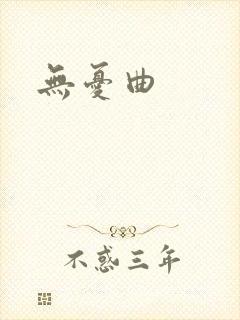 無憂曲
不惑三年